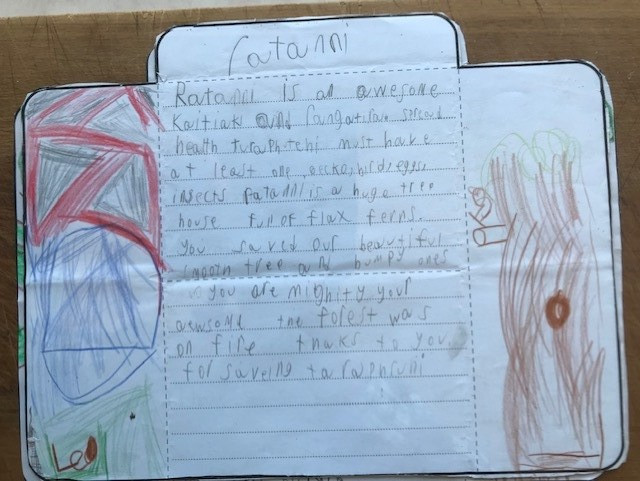 ratanni
Ratanni is an awesome
Kaitiaki and spread
health must have
at least one gecko, bird, eggs,
insects ratanni is a huge tree
house full of flax ferns.
you saved our beautiful
smooth tree and bumpy ones
you are mighty your
awsome the forest was
on fire thaks to you
for saveing
Leo